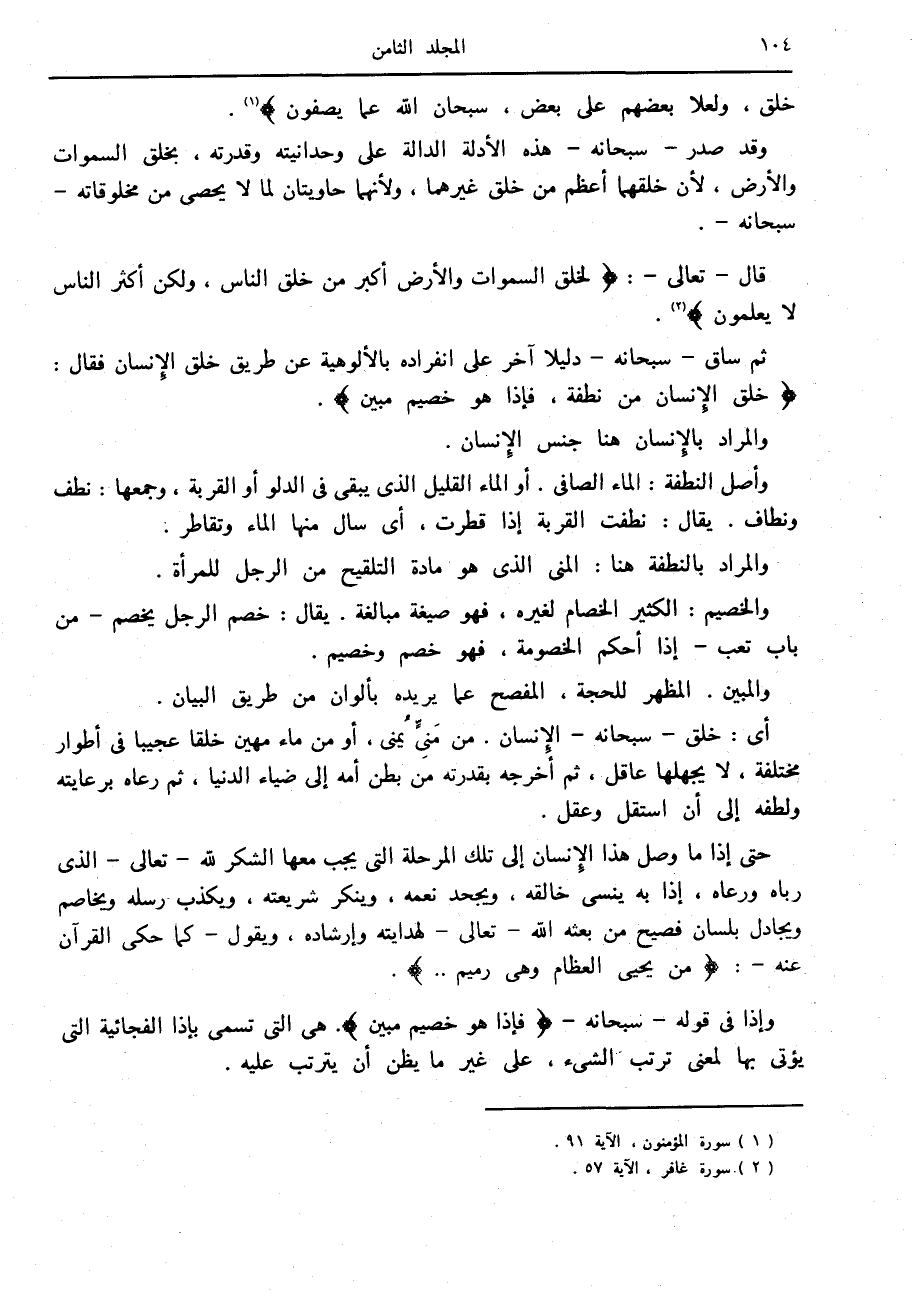 ١٠٤ المجلد الثامن
خلق ، ولعلا بعضهم على بعض ، سبحان الله عما يصفون ﴾(١) .
وقد صدر – سبحانه – هذه الأدلة الدالة على وحدانيته وقدرته ، بخلق السموات
والأرض ، لأن خلقهما أعظم من خلق غيرهما ، ولأنهما حاويتان لما لا يحصى من مخلوقاته –
سبحانه – .
قال – تعالى – : ﴿ لخلق السموات والأرض أكبر من خلق الناس ، ولكن أكثر الناس
لا يعلمون ﴾(٢) .
ثم ساق – سبحانه – دليلا آخر على انفراده بالألوهية عن طريق خلق الإنسان فقال :
﴿ خلق الإنسان من نطفة ، فإذا هو خصيم مبين ﴾ .
والمراد بالإنسان هنا جنس الإنسان .
وأصل النطفة : الماء الصافى . أو الماء القليل الذى يبقى فى الدلو أو القربة ، وجمعها : نطف
ونطاف . يقال : نطفت القربة إذا قطرت ، أى سال منها الماء وتقاطر .
والمراد بالنطفة هنا : المنى الذى هو مادة التلقيح من الرجل للمرأة .
والخصيم : الكثير الخصام لغيره ، فهو صيغة مبالغة . يقال : خصم الرجل يخصم – من
باب تعب – إذا أحكم الخصومة ، فهو خصم وخصيم .
والمبين . المظهر للحجة ، المفصح عما يريده بألوان من طريق البيان .
أى : خلق – سبحانه – الإنسان . من مَنىٍّ يُمنى ، أو من ماء مهين خلقا عجيبا فى أطوار
مختلفة ، لا يجهلها عاقل ، ثم أخرجه بقدرته من بطن أمه إلى ضياء الدنيا ، ثم رعاه برعايته
ولطفه إلى أن استقل وعقل .
حتى إذا ما وصل هذا الإنسان إلى تلك المرحلة التى يجب معها الشكر لله – تعالى – الذى
رباه ورعاه ، إذا به ينسى خالقه ، ويجحد نعمه ، وينكر شريعته ، ويكذب رسله ويخاصم
ويجادل بلسان فصيح من بعثه الله – تعالى – لهدايته وإرشاده ، ويقول – كما حكى القرآن
عنه – : ﴿ من يحيى العظام وهى رميم .. ﴾ .
وإذا فى قوله – سبحانه – ﴿ فإذا هو خصيم مبين ﴾. هى التى تسمى بإذا الفجائية التى
يؤتى بها لمعنى ترتب الشىء ، على غير ما يظن أن يترتب عليه .
( ١ ) سورة المؤمنون ، الآية ٩١ .
( ٢ ) سورة غافر ، الآية ٥٧ .